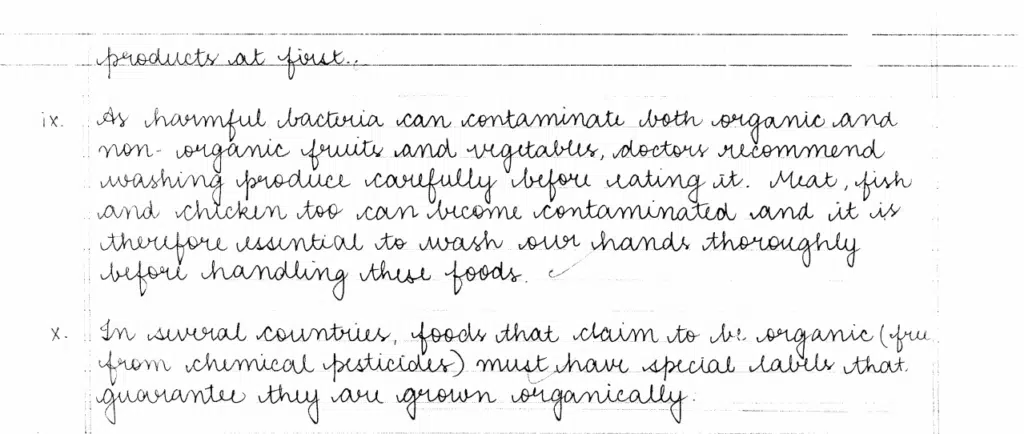 products at first..
ix. As harmful bacteria can contaminate both organic and
non- organic fruits and vegetables, doctors recommend
washing produce carefully before eating it. Meat, fish
and chicken too can become contaminated and it is
therefore essential to wash our hands thoroughly
before handling these foods.
x. In several countries, foods that claim to be organic (free
from chemical pesticides) must have special labels that.
guarantee they are grown organically.